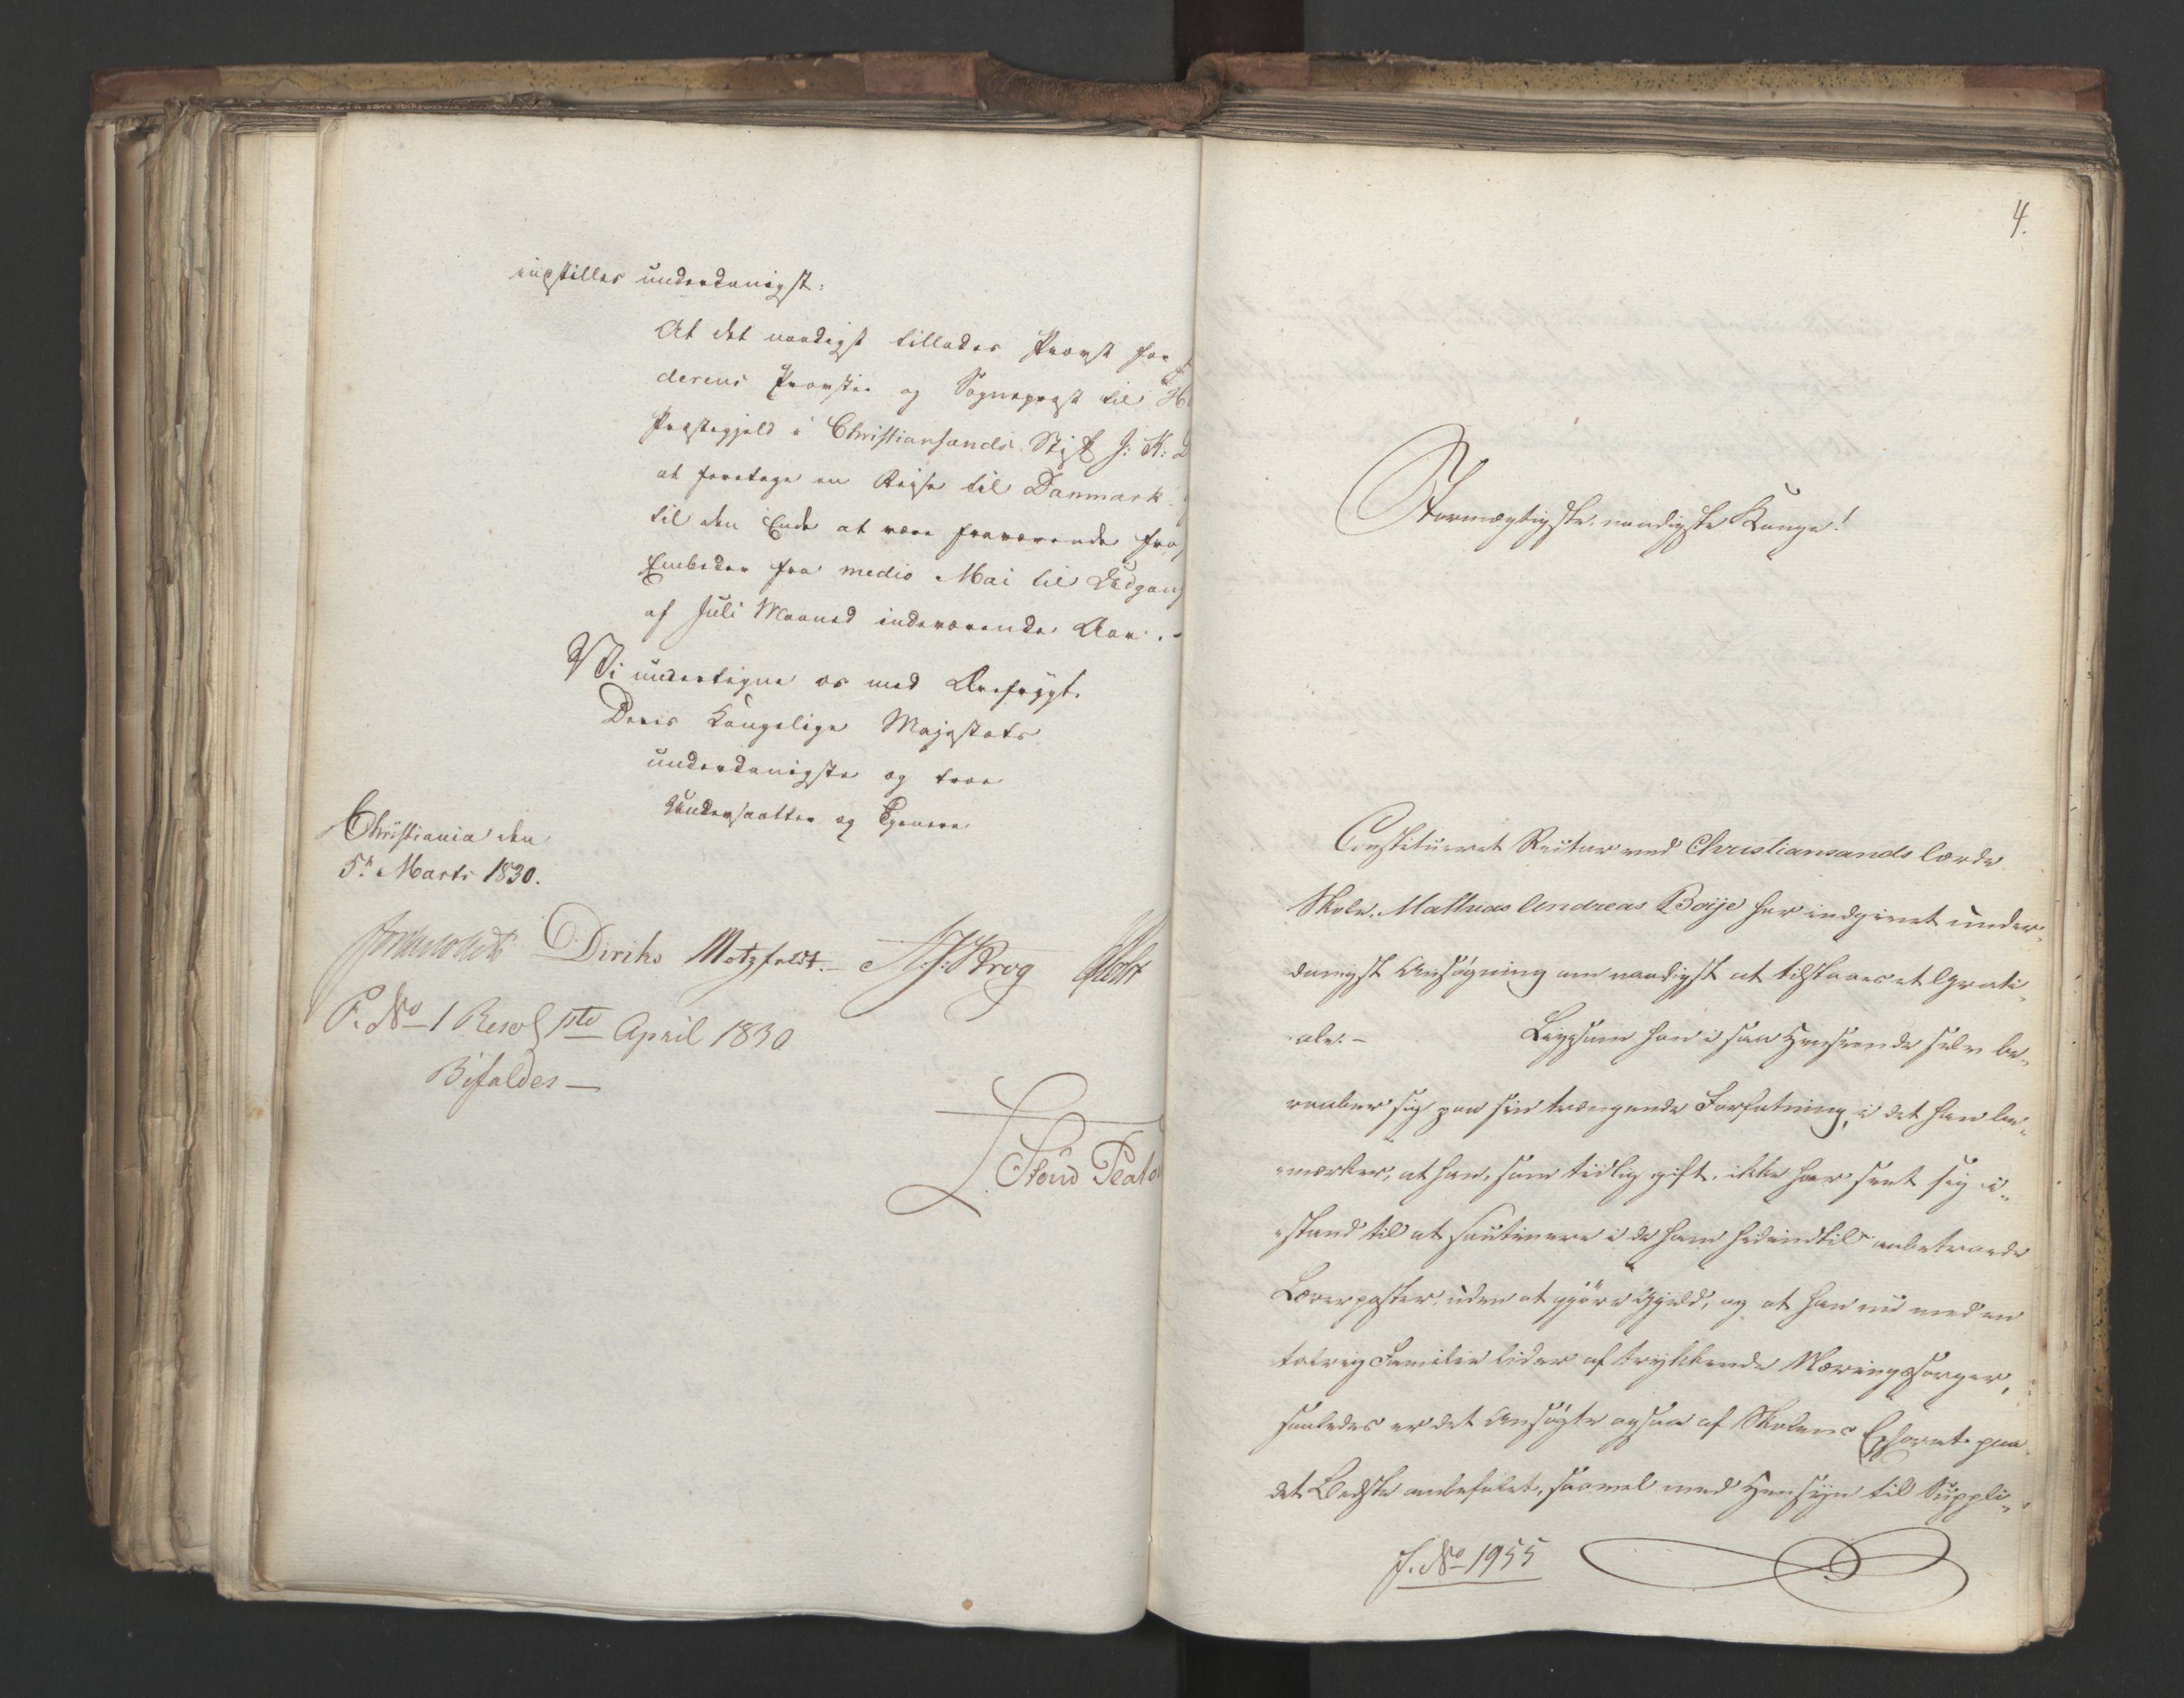 indstilles underdanigst:
At det naadigst tillades Provst for
derens Provstie og Sognepræst til
Præstegjeld i Christiansands Stift J: K:
at foretage en Reise til Danmark
til den Ende at være fraværende fra
Embedet fra medio Mai til Udgang
af Juli Maaned indeværende Aar. -
Vi undertegne os med Ærefrygt
Deres Kongelige Majestæts
underdanigste og troe
Undersaatter og Tjenere
Christiania den
5te Marts 1830.
Diriks Motzfeldt. - Krog Holst
P. No 1 Resol 1ste April 1830
Bifaldes -
4.
Stormægtigste, naadigste Konge!
Constitueret Rector ved Christiansands lærde
Skole, Mathias Andreas Boije har indgivet under„
danigst Ansøgning om naadigst at tilstaaes et Grati„
ale. - Ligesom han i saa Henseende selv be„
raaber sig paa sin trængende Forfatning, i det han be„
„mærker, at han, som tidlig gift, ikke har seet sig i„
„stand til at soutinere i de ham hidindtil anbetroede
Lærerposter, uden at gjøre Gjæld, og at han nu med en
talrig Familie lider af trykkende Næringssorger,
saaledes er det Ansøgte ogsaa af Skolens Ephorat paa
det Bedste anbefalet, saavel med Hensyn til Suppli„
J. No 1955